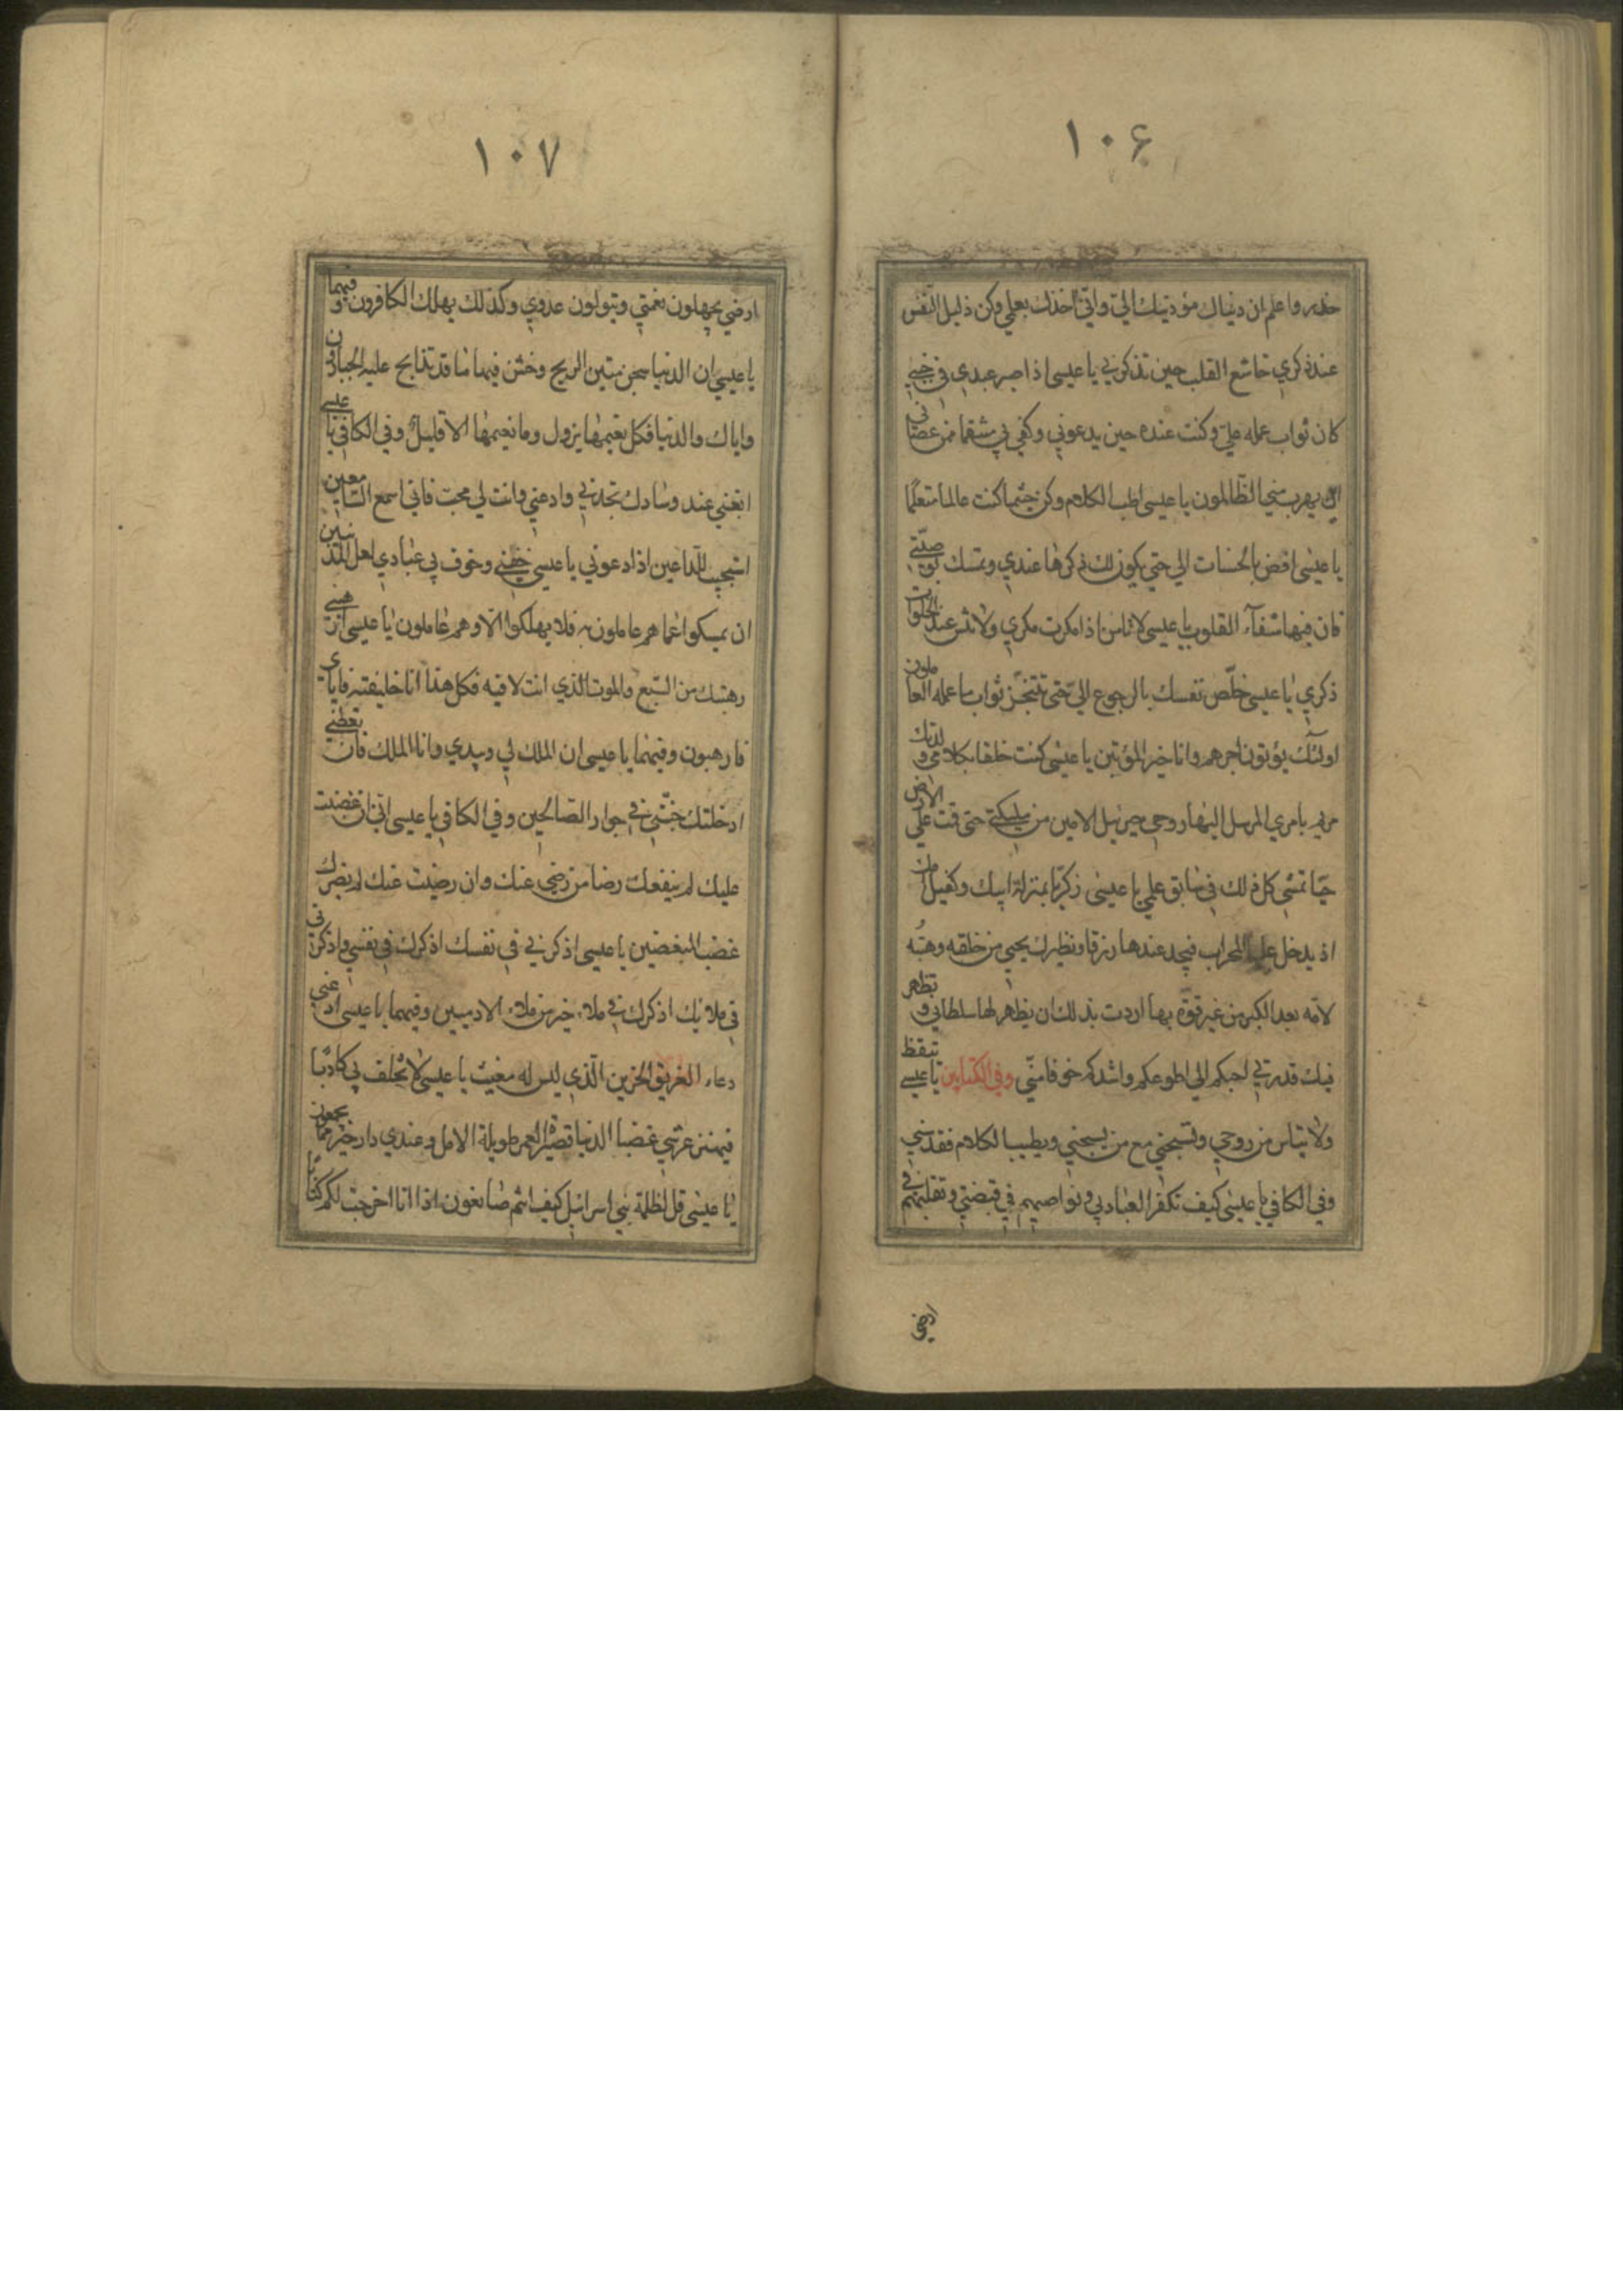 ۱۰۶
حذر واعلم ان دنياك مؤديتك الي واني اخذك بعلمي وكن ذليل النفس
عند ذكري خاشع القلب حين تذكرني يا عيسى اذا صبر عبدي في جنبي
كان ثواب عمله علي وكنت عنده حين يدعوني وكفي بي منتقما ممن عصاني
اين يهرب مني الظالمون يا عيسى اطب الكلام وكن حيثما كنت عالما متعلما
يا عيسى افض بالحسنات الي حتى يكون لك ذكرها عندي وتمسك بوصيتي
فان فيها شفآء للقلوب يا عيسى لا تامن اذا مكرت مكري ولا تنس عند الخلوات
ذكري يا عيسى خلص نفسك بالرجوع الي حتى تتنجز ثواب ما عمله العاملون
اولئك يؤتون اجرهم وانا خير المؤتين يا عيسى كنت خلقا بكلامي ولدتك
مريم بامري المرسل اليها روحي جبرئيل الامين من ملئكتي حتى قمت على الارض
حيا تمشي كل ذلك في سابق علمي يا عيسى زكريا بمنزلة ابيك وكفيل امك
اذ يدخل عليها المحراب فيجد عندها رزقا ونظيرك يحيى من خلقه وهبته
لامه بعد الكبر من غير قوة بها اردت بذلك ان يظهر لها سلطاني وتظهر
فيك قدرتي احبكم الي اطوعكم واشدكم خوفا مني وفي الكتابين يا عيسى تيقظ
ولا تياس من روحي وتسبحني مع من يسبحني وبطيب الكلام فقدسني
وفي الكافي يا عيسى كيف تكفر العباد بي ونواصيهم في قبضتي وتقلبهم في
ارضي
۱۰۷
ارضي يجهلون نعمتي ويتولون عدوي وكذلك يهلك الكافرون وفيهما
يا عيسى ان الدنيا سجن منتن الريح وخشن فيها ما قد تذابح عليه الجبارون
واياك والدنيا فكل نعيمها يزول وما نعيمها الا قليل وفي الكافي يا عيسى
ابغني عند وسادك تجدني وادعني وانت لي محب فاني اسمع السامعين
استجيب للداعين اذا دعوني يا عيسى خفني وخوف بي عبادي لعل المذنبين
ان يمسكوا عما هم عاملون به فلا يهلكوا الا وهم عاملون يا عيسى ارهبني
رهبتك من السبع والموت الذي انت لاقيه فكل هذا انا خليقته فاياي
فارهبون وفيهما يا عيسى ان الملك لي وبيدي وانا الملك فان تطعني
ادخلتك جنتي في جوار الصالحين وفي الكافي يا عيسى اني ان غضبت
عليك لم ينفعك رضا من رضي عنك وان رضيت عنك لم يضرك
غضب المغضبين يا عيسى اذكرني في نفسك اذكرك في نفسي واذكرني
في ملائك اذكرك في ملاء خير من ملاء الادميين وفيهما يا عيسى ادعني
دعاء الغريق الحزين الذي ليس له مغيث يا عيسى لا تحلف بي كاذبا
فيهتز عرشي غضبا الدنيا قصيرة العمر طويلة الامل وعندي دار خير مما يجمعون
يا عيسى قل لظلمة بني اسرائيل كيف انتم صانعون اذا انا اخرجت لكم كتابا